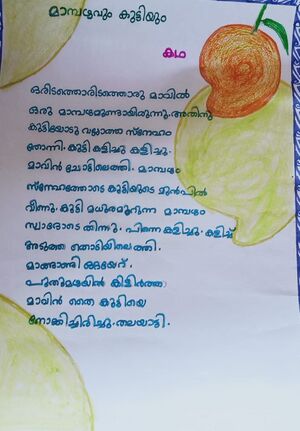 മാമ്പഴവും കുട്ടിയും
കഥ
ഒരിടത്തൊരിടത്തൊരു മാവിൽ
ഒരു മാമ്പഴമുണ്ടായിരുന്നു.അതിനു
കുട്ടിയോടു വല്ലാത്ത സ്നേഹം
തോന്നി. കുട്ടി കളിച്ചു കളിച്ചു.
മാവിൻ ചോട്ടിലെത്തി. മാമ്പഴം
സ്നേഹത്തോടെ കുട്ടിയുടെ മുൻപിൽ
വീണു. കുട്ടി മധുരമൂറുന്ന മാമ്പഴം
സ്വാദോടെ തിന്നു. പിന്നെ കളിച്ചു. കളിച്ച്
അടുത്ത തൊടിയിലെത്തി.
മാങ്ങാണ്ടി ഒറ്റയേറ്.
പുതുമഴയിൽ കിളിർത്ത
മാവിൻ തൈ കുട്ടിയെ
നോക്കിച്ചിരിച്ചു. തലയാട്ടി.